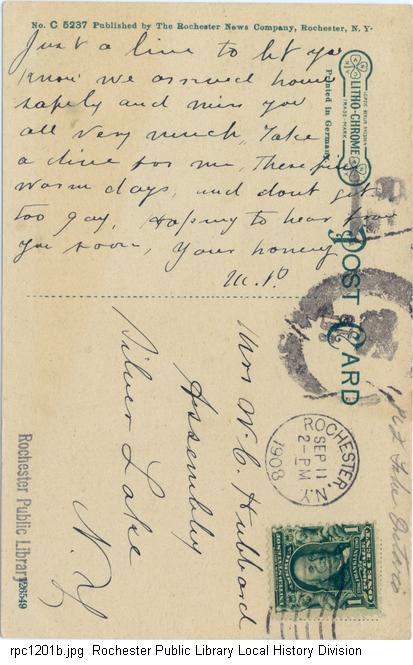 No. C 5237 Published by The Rochester News Company, Rochester, N. Y.
Just a line to let you
know we arrived home
safely and miss you
all very much, Take
a dive for me, these fine
warm days, and dont get
too gay, Hoping to hear from
you soon, Your honey
M. P.
LITHO-CHROME
TRADE-MARK
Printed in Germany
POST CARD
Mrs W. C. Hubbard
Assembly
Silver Lake
N. Y
ROCHESTER, N.Y.
SEP 11
2-PM
1908
Rochester Public Library
rpc1201b.jpg Rochester Public Library Local History Division